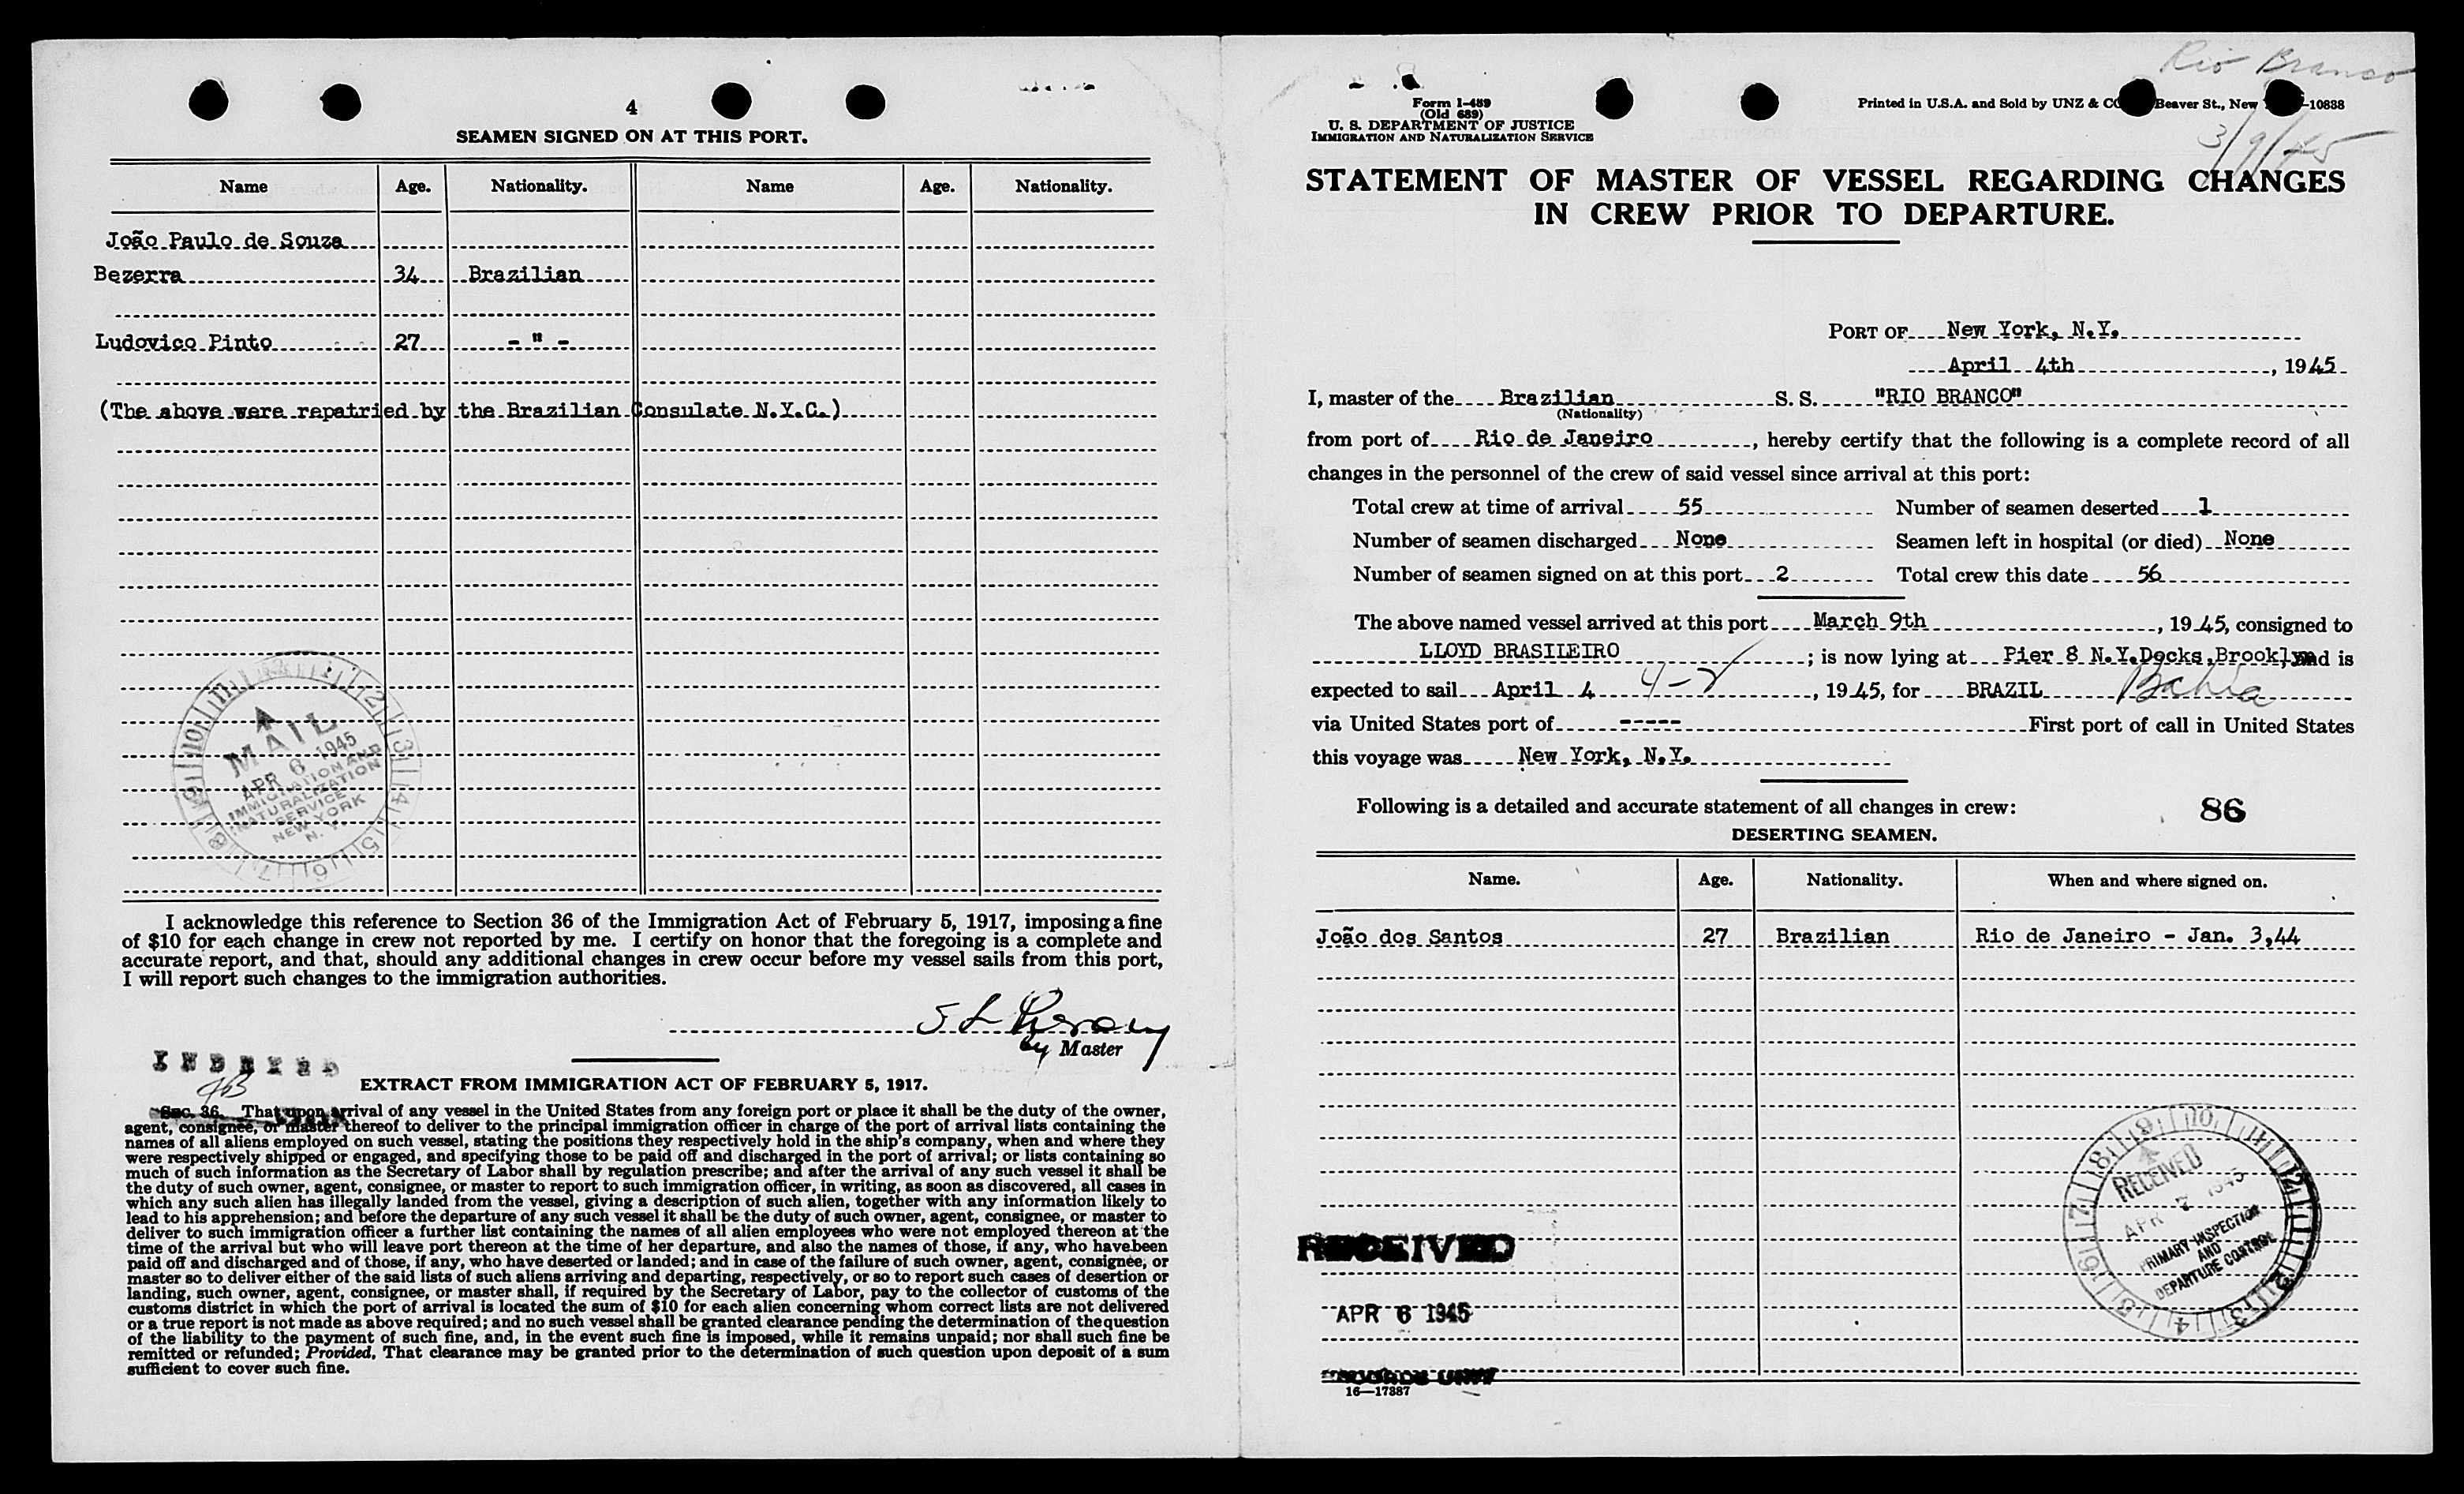 4
SEAMEN SIGNED ON AT THIS PORT.
Name Age. Nationality. Name Age. Nationality.
João Paulo de Souza
Bezerra 34 Brazilian
Ludovico Pinto 27 - " -
(The above were repatried by the Brazilian Consulate N.Y.C.)
MAIL
APR 6 1945
IMMIGRATION AND
NATURALIZATION
SERVICE
NEW YORK
N. Y.
I acknowledge this reference to Section 36 of the Immigration Act of February 5, 1917, imposing a fine
of $10 for each change in crew not reported by me. I certify on honor that the foregoing is a complete and
accurate report, and that, should any additional changes in crew occur before my vessel sails from this port,
I will report such changes to the immigration authorities.
by Master
INDEXED
EXTRACT FROM IMMIGRATION ACT OF FEBRUARY 5, 1917.
Sec. 36. That upon arrival of any vessel in the United States from any foreign port or place it shall be the duty of the owner,
agent, consignee, or master thereof to deliver to the principal immigration officer in charge of the port of arrival lists containing the
names of all aliens employed on such vessel, stating the positions they respectively hold in the ship's company, when and where they
were respectively shipped or engaged, and specifying those to be paid off and discharged in the port of arrival; or lists containing so
much of such information as the Secretary of Labor shall by regulation prescribe; and after the arrival of any such vessel it shall be
the duty of such owner, agent, consignee, or master to report to such immigration officer, in writing, as soon as discovered, all cases in
which any such alien has illegally landed from the vessel, giving a description of such alien, together with any information likely to
lead to his apprehension; and before the departure of any such vessel it shall be the duty of such owner, agent, consignee, or master to
deliver to such immigration officer a further list containing the names of all alien employees who were not employed thereon at the
time of the arrival but who will leave port thereon at the time of her departure, and also the names of those, if any, who have been
paid off and discharged and of those, if any, who have deserted or landed; and in case of the failure of such owner, agent, consignee, or
master so to deliver either of the said lists of such aliens arriving and departing, respectively, or so to report such cases of desertion or
landing, such owner, agent, consignee, or master shall, if required by the Secretary of Labor, pay to the collector of customs of the
customs district in which the port of arrival is located the sum of $10 for each alien concerning whom correct lists are not delivered
or a true report is not made as above required; and no such vessel shall be granted clearance pending the determination of the question
of the liability to the payment of such fine, and, in the event such fine is imposed, while it remains unpaid; nor shall such fine be
remitted or refunded; Provided, That clearance may be granted prior to the determination of such question upon deposit of a sum
sufficient to cover such fine.
Rio Branco
3/9/45
Form I-489
(Old 689)
U. S. DEPARTMENT OF JUSTICE
IMMIGRATION AND NATURALIZATION SERVICE
Printed in U.S.A. and Sold by UNZ & CO Beaver St., New -10838
STATEMENT OF MASTER OF VESSEL REGARDING CHANGES
IN CREW PRIOR TO DEPARTURE.
PORT OF New York, N.Y.
April 4th, 1945
I, master of the Brazilian S. S. "RIO BRANCO"
(Nationality)
from port of Rio de Janeiro, hereby certify that the following is a complete record of all
changes in the personnel of the crew of said vessel since arrival at this port:
Total crew at time of arrival 55 Number of seamen deserted 1
Number of seamen discharged None Seamen left in hospital (or died) None
Number of seamen signed on at this port 2 Total crew this date 56
The above named vessel arrived at this port March 9th, 1945, consigned to
LLOYD BRASILEIRO; is now lying at Pier 8 N.Y.Docks,Brooklyn and is
expected to sail April 4 4-2, 1945, for BRAZIL Bahia
via United States port of ----- First port of call in United States
this voyage was New York, N.Y.
Following is a detailed and accurate statement of all changes in crew: 86
DESERTING SEAMEN.
Name. Age. Nationality. When and where signed on.
João dos Santos 27 Brazilian Rio de Janeiro - Jan. 3,44
RECEIVED
APR 7 1945
PRIMARY INSPECTION
AND
DEPARTURE CONTROL
RECEIVED
APR 6 1945
RECORDS UNIT
16—17887